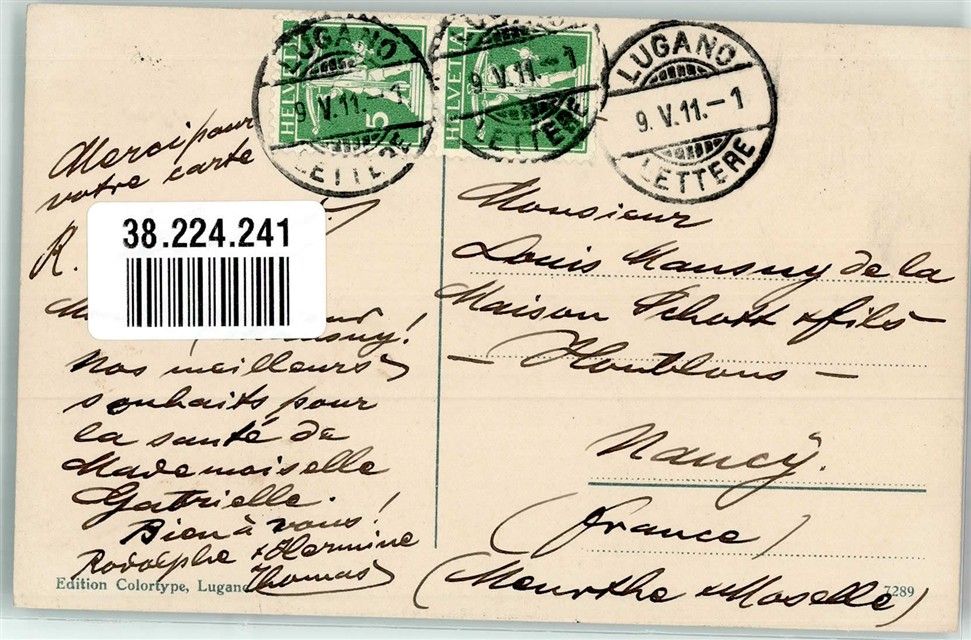 HELVETIA 5
HELVETIA
LUGANO
9. V. 11. - 1
LETTERE
LUGANO
9. V. 11. - 1
LETTERE
LUGANO
9. V. 11. - 1
LETTERE
Merci pour
votre carte
R.
38.224.241
nos meilleurs
souhaits pour
la santé de
Mademoiselle
Gabrielle.
Bien à vous!
Rodolphe + Hermine
Thomas
Edition Colortype, Lugano
Monsieur
Louis Mansuy de la
Maison Schott & fils
— Houblons —
Nancÿ.
(France)
(Meurthe & Moselle)
7289